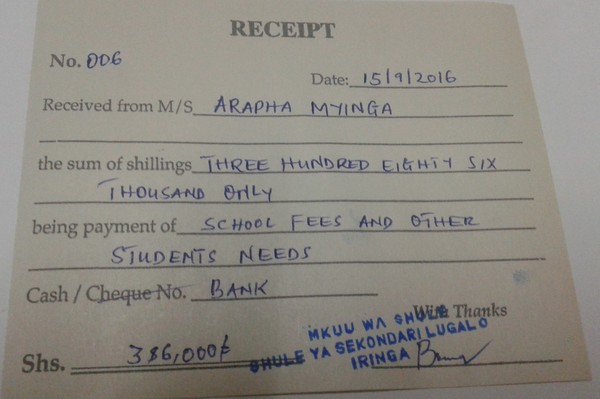 RECEIPT
No. 006
Date: 15/9/2016
Received from M/S ARAPHA MYINGA
the sum of shillings THREE HUNDRED EIGHTY SIX
THOUSAND ONLY
being payment of SCHOOL FEES AND OTHER
STUDENTS NEEDS
Cash / Cheque No. BANK
With Thanks
MKUU WA SHULE
SHULE YA SEKONDARI LUGALO
IRINGA
Shs. 386,000/=